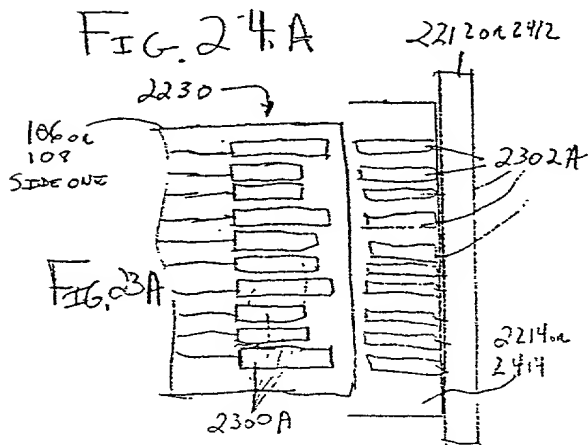 FIG. 24.A
2212 or 2412
2230
106 or
108
SIDE ONE
2302A
FIG. 23A
2214 or
2414
2300A